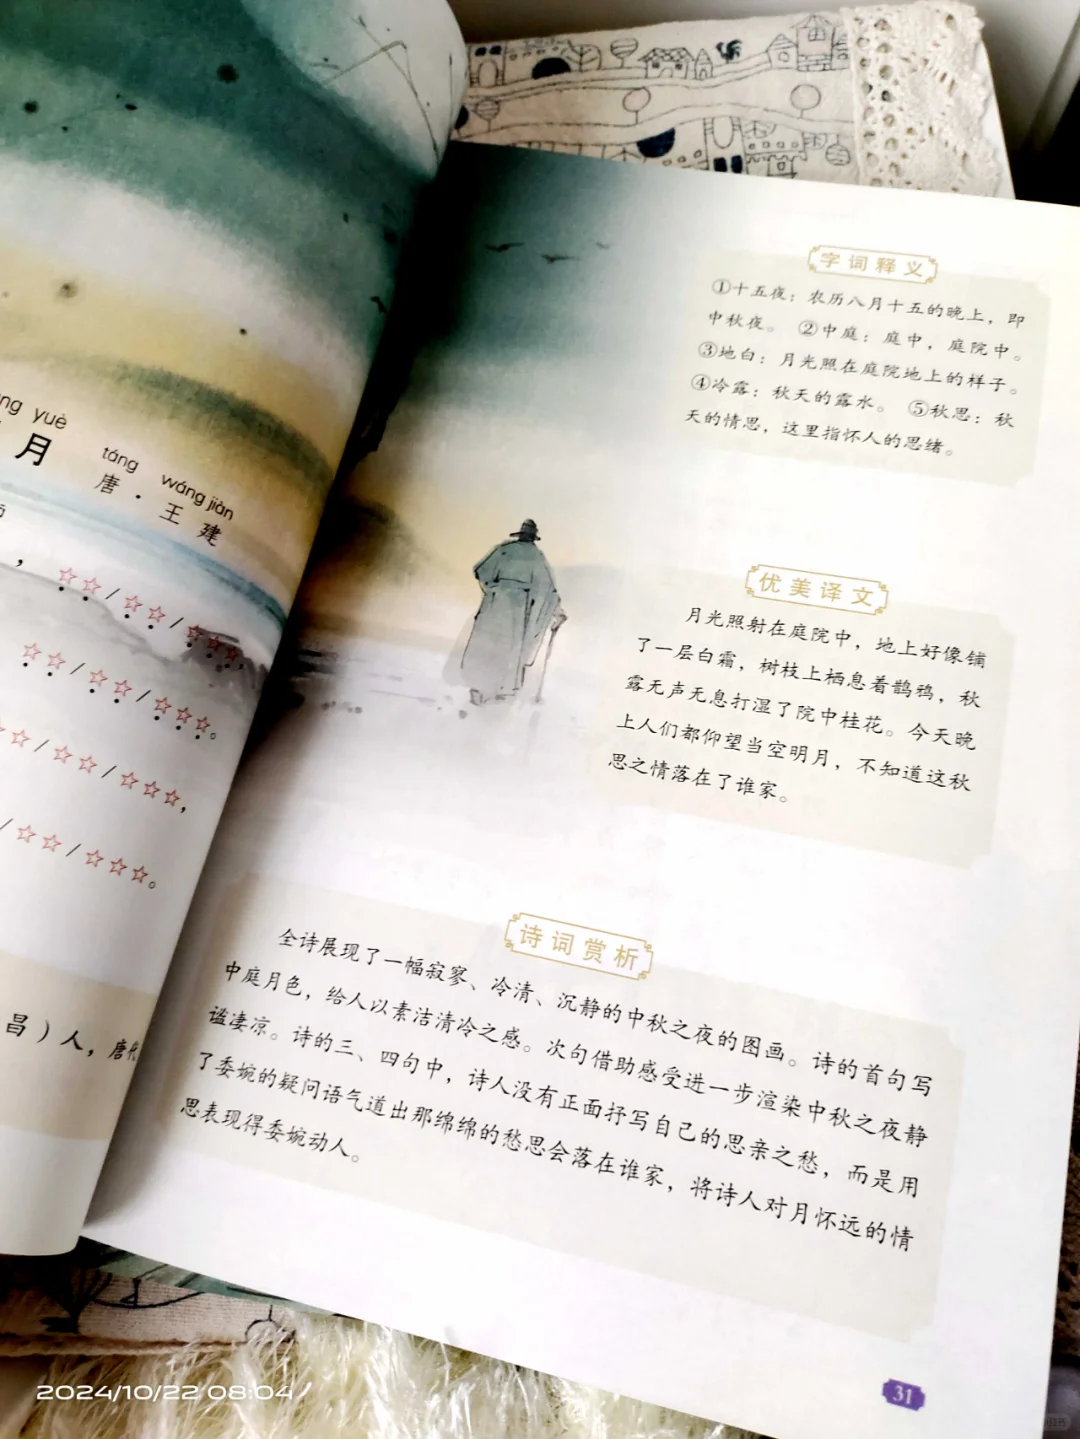 yuè
月
táng wáng jiàn
唐·王建
,☆☆/☆☆/☆☆☆,
☆☆/☆☆/☆☆☆。
☆/☆☆/☆☆☆,
/☆☆/☆☆☆。
昌）人，唐代
字词释义
①十五夜：农历八月十五的晚上，即
中秋夜。 ②中庭：庭中，庭院中。
③地白：月光照在庭院地上的样子。
④冷露：秋天的露水。 ⑤秋思：秋
天的情思，这里指怀人的思绪。
优美译文
月光照射在庭院中，地上好像铺
了一层白霜，树枝上栖息着鹊鸦，秋
露无声无息打湿了院中桂花。今天晚
上人们都仰望当空明月，不知道这秋
思之情落在了谁家。
诗词赏析
全诗展现了一幅寂寥、冷清、沉静的中秋之夜的图画。诗的首句写
中庭月色，给人以素洁清冷之感。次句借助感受进一步渲染中秋之夜静
谧凄凉。诗的三、四句中，诗人没有正面抒写自己的思亲之愁，而是用
了委婉的疑问语气道出那绵绵的愁思会落在谁家，将诗人对月怀远的情
思表现得委婉动人。
31
2024/10/22 08:04